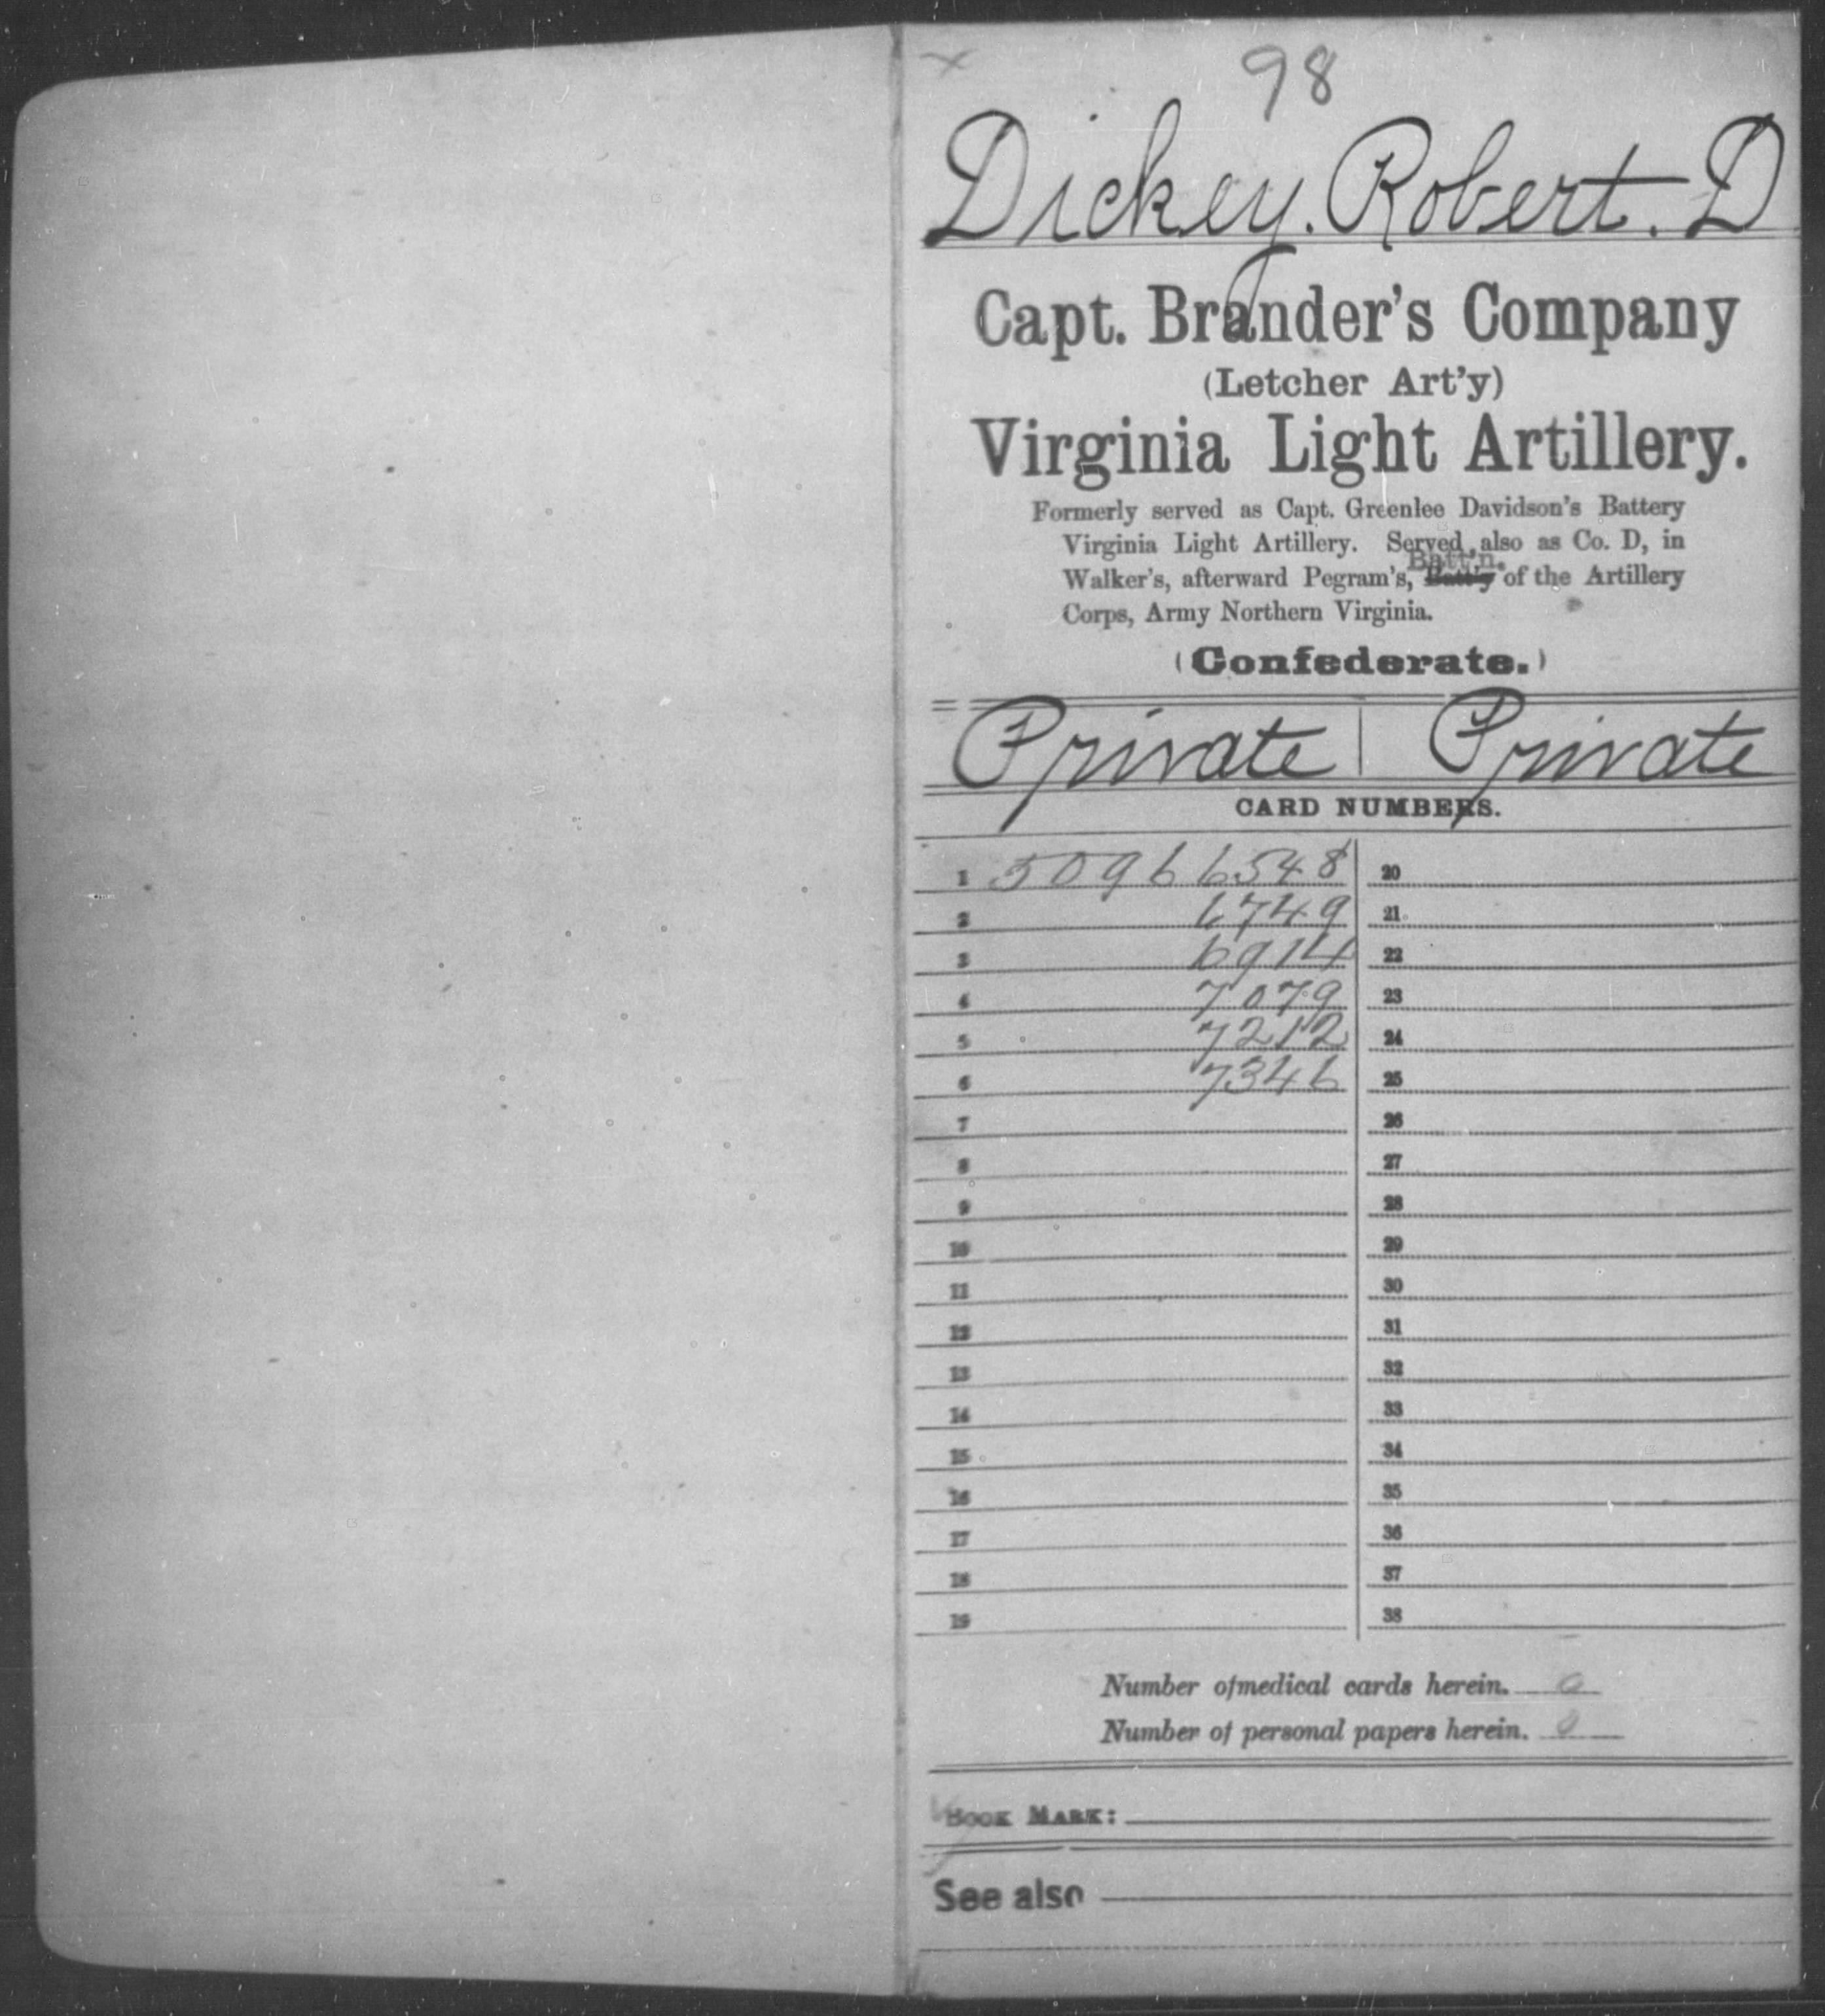 x
98
Dickey. Robert. D
Capt. Brander's Company
(Letcher Art'y)
Virginia Light Artillery.
Formerly served as Capt. Greenlee Davidson's Battery
Virginia Light Artillery. Served also as Co. D, in
Batt'n.
Walker's, afterward Pegram's, Batt'y of the Artillery
Corps, Army Northern Virginia.
(Confederate.)
Private | Private
CARD NUMBERS.
1 50966548 20
2 6749 21
3 6914 22
4 7079 23
5 7212 24
6 7346 25
7 26
8 27
9 28
10 29
11 30
12 31
13 32
14 33
15 34
16 35
17 36
18 37
19 38
Number of medical cards herein. 0
Number of personal papers herein. 0
BOOK MARK:
See also